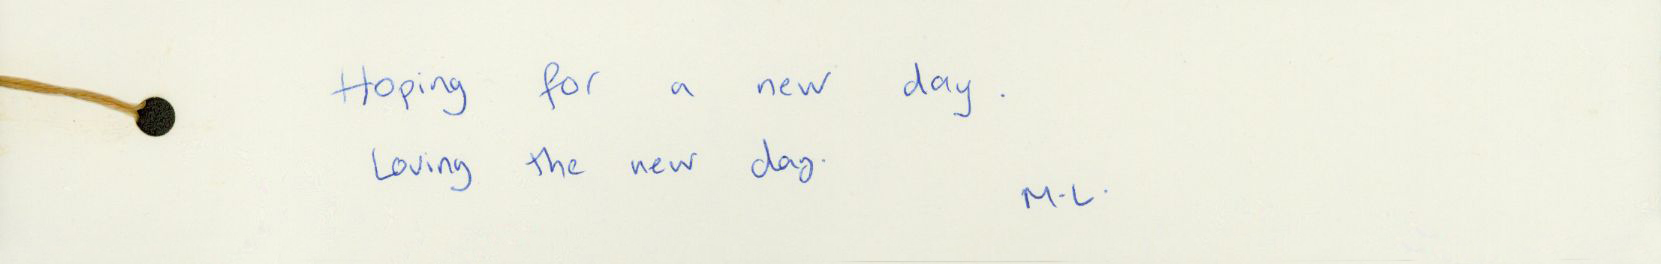 Hoping for a new day.
Loving the new day.
M.L.